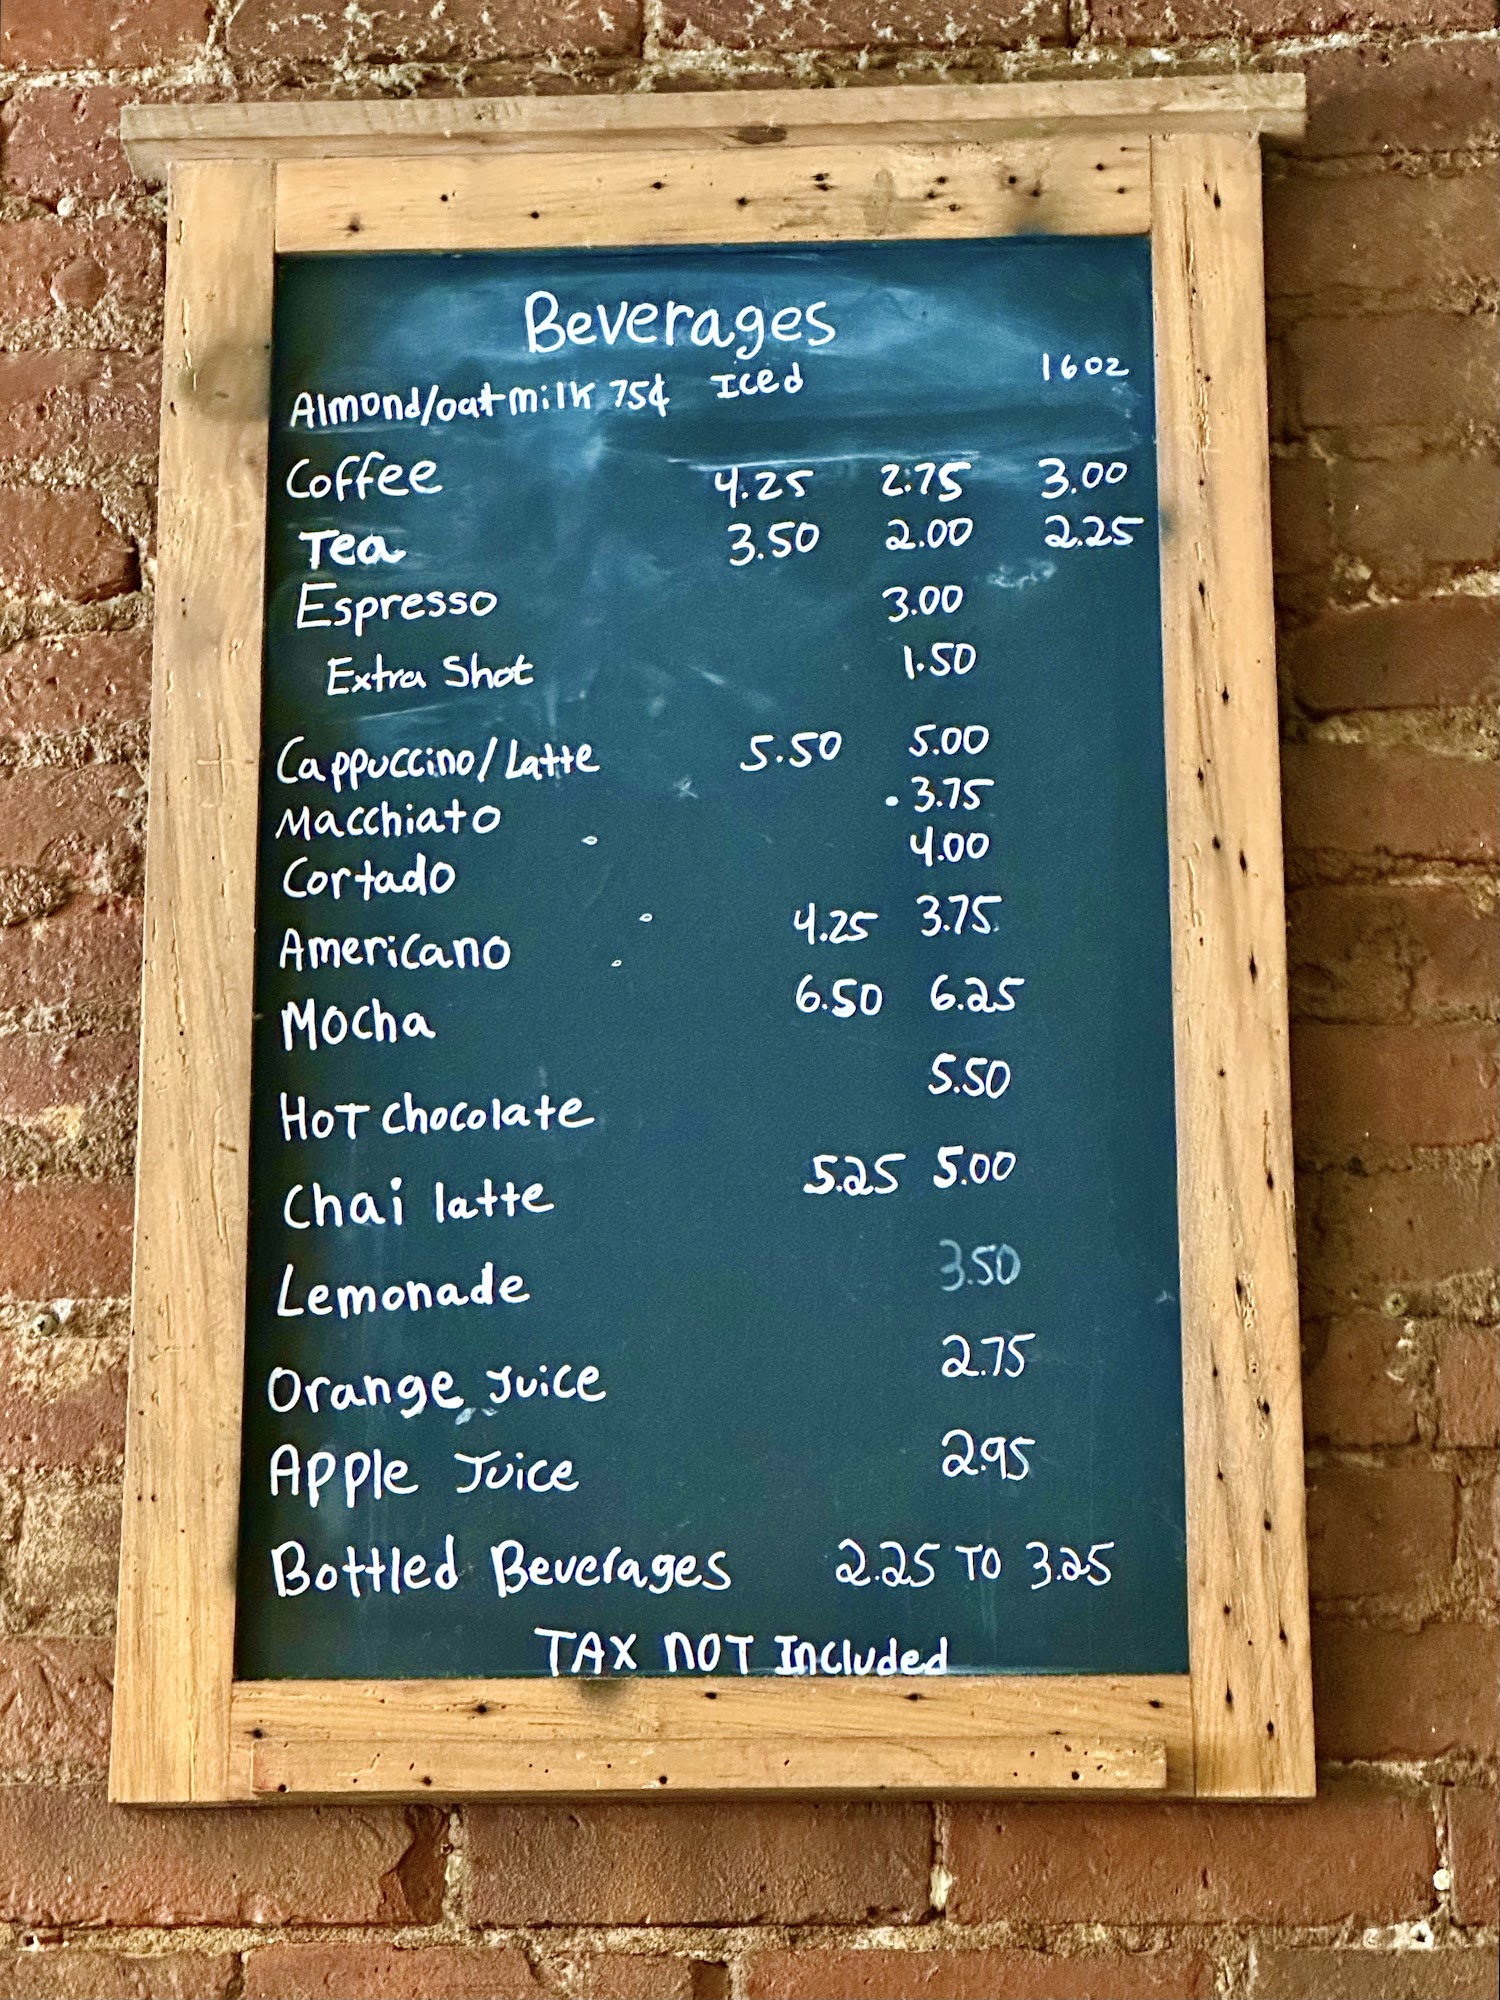 Beverages
Almond/oatmilk 75¢ Iced 16oz
Coffee 4.25 2.75 3.00
Tea 3.50 2.00 2.25
Espresso 3.00
Extra Shot 1.50
Cappuccino/Latte 5.50 5.00
Macchiato 3.75
Cortado 4.00
Americano 4.25 3.75
Mocha 6.50 6.25
Hot Chocolate 5.50
Chai latte 5.25 5.00
Lemonade 3.50
Orange Juice 2.75
Apple Juice 2.95
Bottled Beverages 2.25 TO 3.25
TAX NOT Included